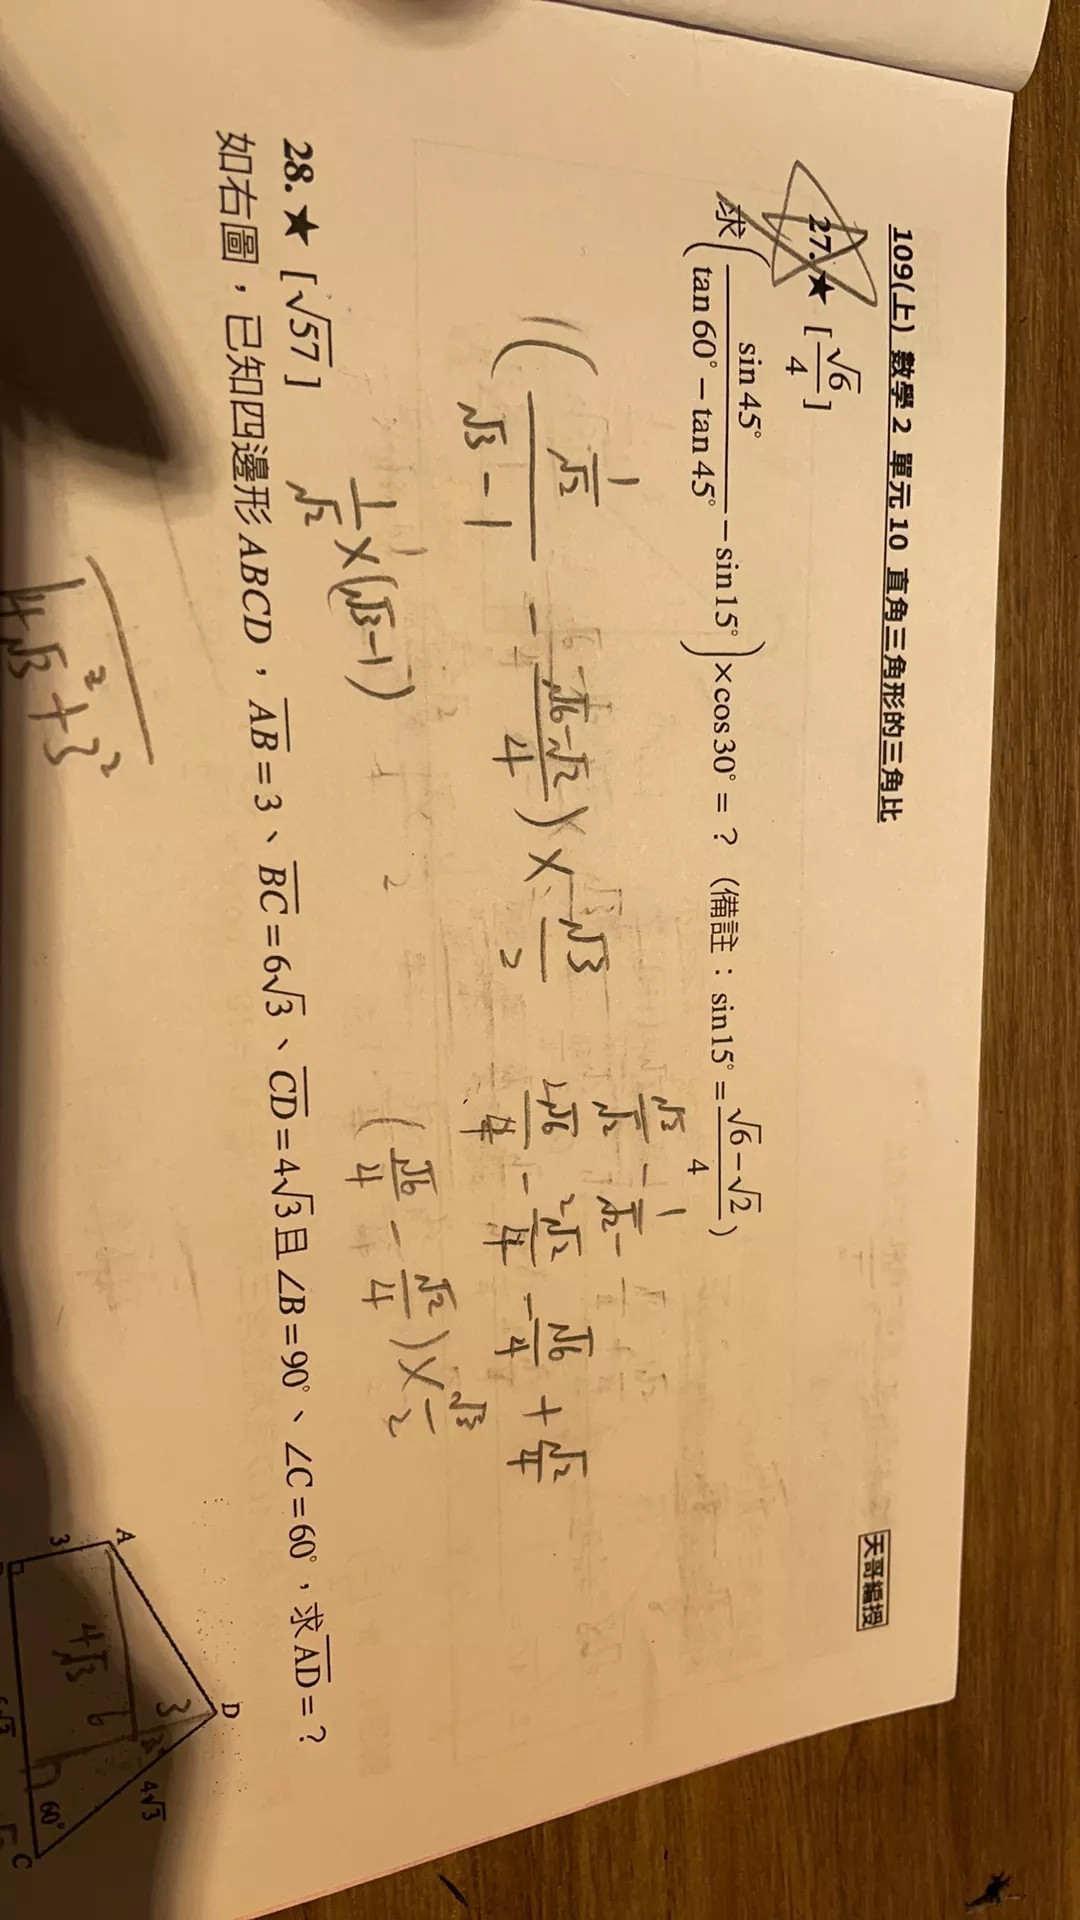 109(上) 數學 2 單元 10 直角三角形的三角比
天哥編授
27. ★ [√6/4]
求(sin 45°/(tan 60° − tan 45°) − sin 15°) × cos 30° = ? (備註：sin 15° = (√6 − √2)/4)
((1/√2)/(√3 − 1) − (√6 − √2)/4) × √3/2
1/√2 × (√3 − 1)
√3/√2 − 1/√2 −
2√6/4 − 2√2/4 − √6/4 + √2/4
(√6/4 − √2/4) × √3/2
28. ★ [√57]
如右圖，已知四邊形 ABCD，AB = 3、BC = 6√3、CD = 4√3 且 ∠B = 90°、∠C = 60°，求 AD = ?
√(4√3² + 3²)
A
D
3
3
4√3
6
4√3
60°
C